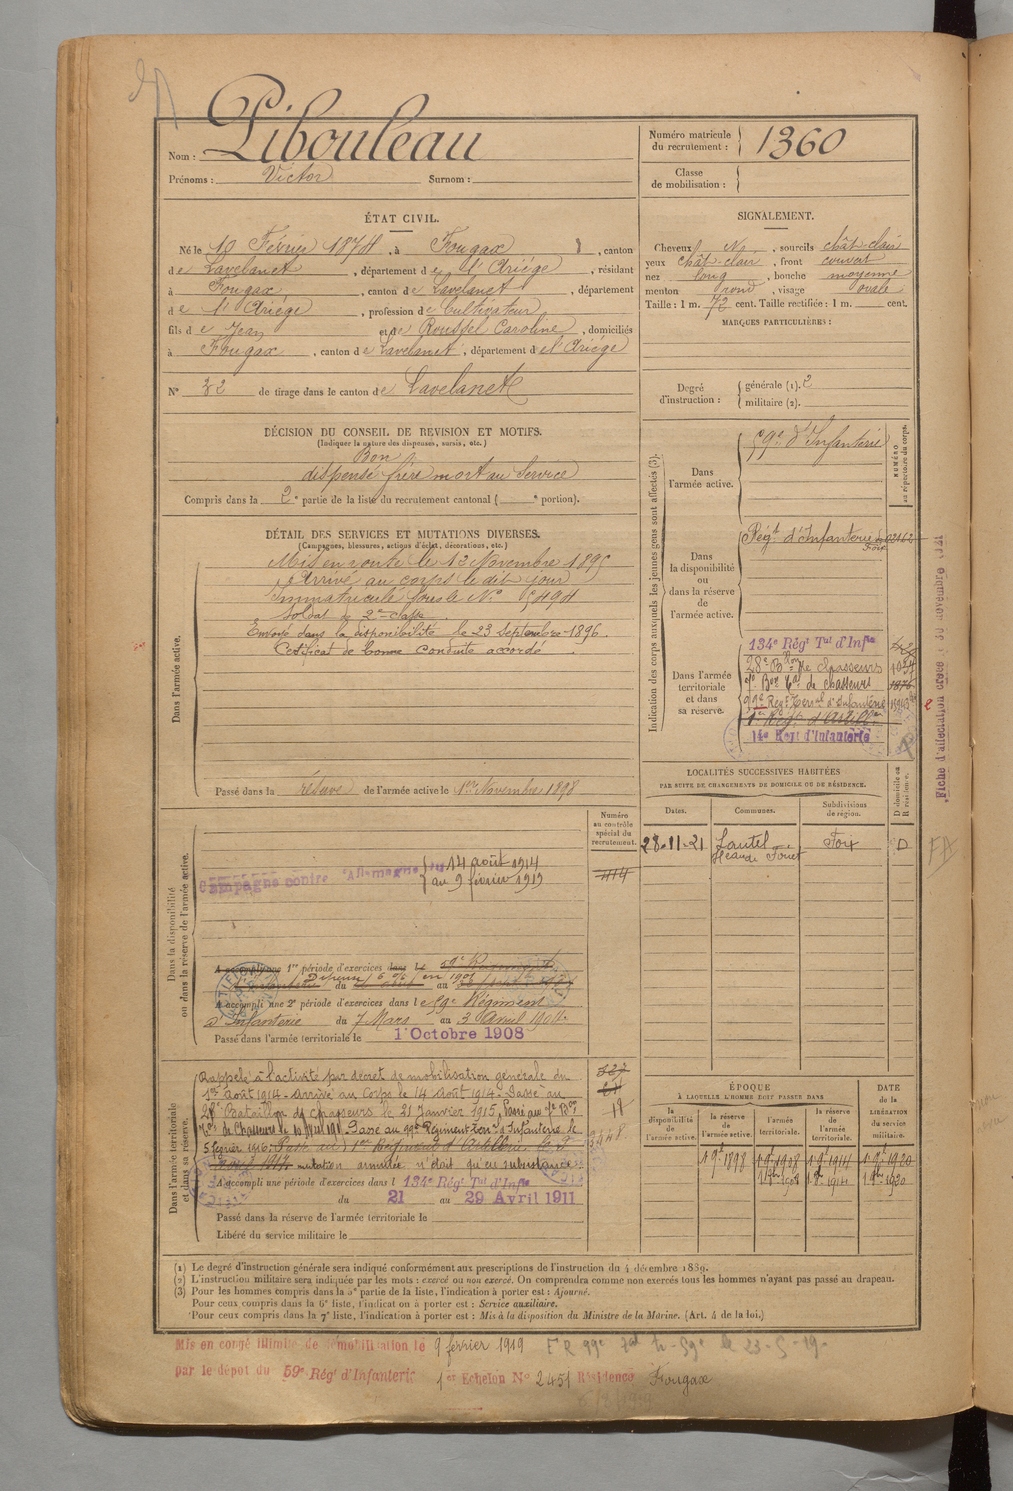 Pibouleau
Nom :
Prénoms : Victor Surnom :
Numéro matricule du recrutement : 1360
Classe de mobilisation :
ÉTAT CIVIL.
Né le 10 Février 1874, à Fougax, canton
de Lavelanet, département de l'Ariège, résidant
à Fougax, canton de Lavelanet, département
de l'Ariège, profession de Cultivateur
fils de Jean et de Roussel Caroline, domiciliés
à Fougax, canton de Lavelanet, département de l'Ariège
N° 32 de tirage dans le canton de Lavelanet
SIGNALEMENT.
Cheveux, sourcils chât-clair
yeux chât-clair, front couvert
nez long, bouche moyenne
menton rond, visage ovale
Taille : 1 m. 72 cent. Taille rectifiée : 1 m. cent.
MARQUES PARTICULIÈRES :
Degré d'instruction : générale (1). 2
militaire (2).
DÉCISION DU CONSEIL DE REVISION ET MOTIFS.
(Indiquer la nature des dispenses, sursis, etc.)
Bon
dispensé frère mort au Service
Compris dans la 2e partie de la liste du recrutement cantonal ( e portion).
DÉTAIL DES SERVICES ET MUTATIONS DIVERSES.
(Campagnes, blessures, actions d'éclat, décorations, etc.)
Dans l'armée active.
Mis en route le 13 Novembre 1895
Arrivé au corps le dit jour
Immatriculé sous le N° 5494
Soldat de 2e classe
Envoyé dans la disponibilité le 23 Septembre 1896.
Certificat de bonne conduite accordé.
Passé dans la réserve de l'armée active le 1er Novembre 1898
Indication des corps auxquels les jeunes gens sont affectés (3).
NUMÉRO au répertoire du corps.
Dans l'armée active.
59e d'Infanterie
Dans la disponibilité ou dans la réserve de l'armée active.
Régt d'Infanterie de Foix
Dans l'armée territoriale et dans sa réserve.
134e Régt Tal d'Infie
28e Bon de chasseurs
7e Bon Tal de chasseurs
99e Régt Territal d'Infanterie
1er Régt d'Artillie
14e Regt d'Infanterie
Fiche d'affectation
LOCALITÉS SUCCESSIVES HABITÉES
PAR SUITE DE CHANGEMENTS DE DOMICILE OU DE RÉSIDENCE.
Dates. Communes. Subdivisions de région. D domicile ou R résidence.
28-11-21 Foix D
Dans la disponibilité ou dans la réserve de l'armée active.
Numéro au contrôle spécial du recrutement.
Campagne contre l'Allemagne du 14 août 1914
au 9 février 1919
A accompli une 1re période d'exercices dans le 59e Régiment
d'Infanterie du au
A accompli une 2e période d'exercices dans le 59e Régiment
d'Infanterie du 7 Mars au 3 Avril 1904
Passé dans l'armée territoriale le 1 Octobre 1908
Dans l'armée territoriale et dans sa réserve.
Rappelé à l'activité par décret de mobilisation générale du
1er Août 1914 - Arrivé au Corps le 14 Août 1914 - Passé au
28e Bataillon de Chasseurs le 21 Janvier 1915. Passé au 7e Bon
Passé au 99e Régiment Ter d'Infanterie le
5 février 1916. Passé au 1er Régiment d'Artillerie le
mutation annulée n'était qu'en subsistance
A accompli une période d'exercices dans l 134e Régt Tal d'Infie
du 21 au 29 Avril 1911
Passé dans la réserve de l'armée territoriale le
Libéré du service militaire le
ÉPOQUE
À LAQUELLE L'HOMME DOIT PASSER DANS
la disponibilité de l'armée active. la réserve de l'armée active. l'armée territoriale. la réserve de l'armée territoriale. DATE de la LIBÉRATION DU SERVICE militaire.
1 9bre 1898 1 9bre 1908 1 9bre 1914 1 9bre 1920
(1) Le degré d'instruction générale sera indiqué conformément aux prescriptions de l'instruction du 4 décembre 1889.
(2) L'instruction militaire sera indiquée par les mots : exercé ou non exercé. On comprendra comme non exercés tous les hommes n'ayant pas passé au drapeau.
(3) Pour les hommes compris dans la 5e partie de la liste, l'indication à porter est : Ajourné.
Pour ceux compris dans la 6e liste, l'indication à porter est : Service auxiliaire.
Pour ceux compris dans la 7e liste, l'indication à porter est : Mis à la disposition du Ministre de la Marine. (Art. 4 de la loi.)
Mis en congé illimité de démobilisation le 9 février 1919
par le dépot du 59e Régt d'Infanterie 1er Echelon N° 2451 Résidence Fougax